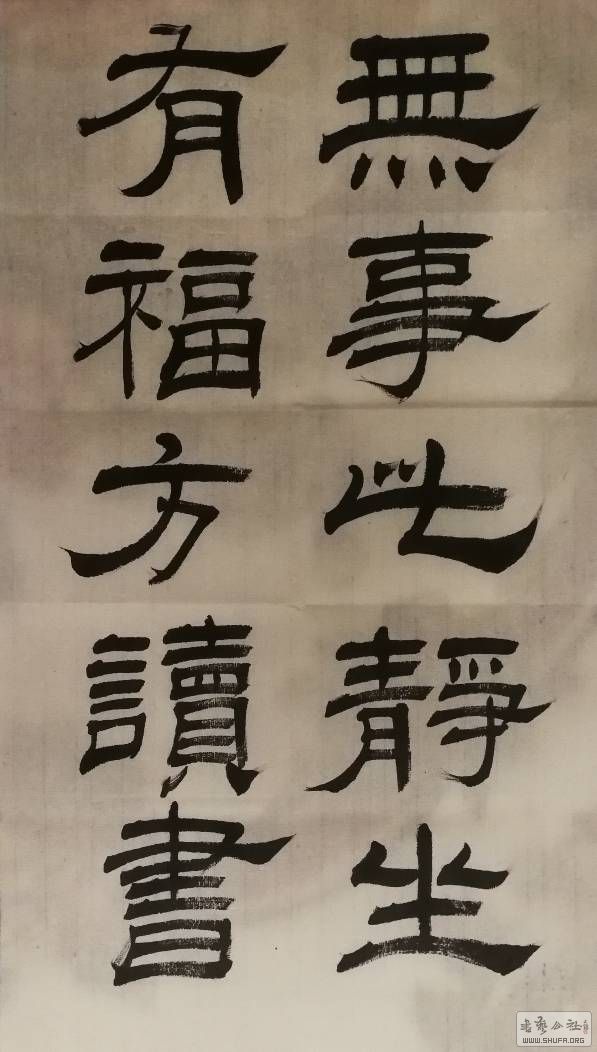 無事此靜坐
有福方讀書
書藝公社
WWW.SHUFA.ORG